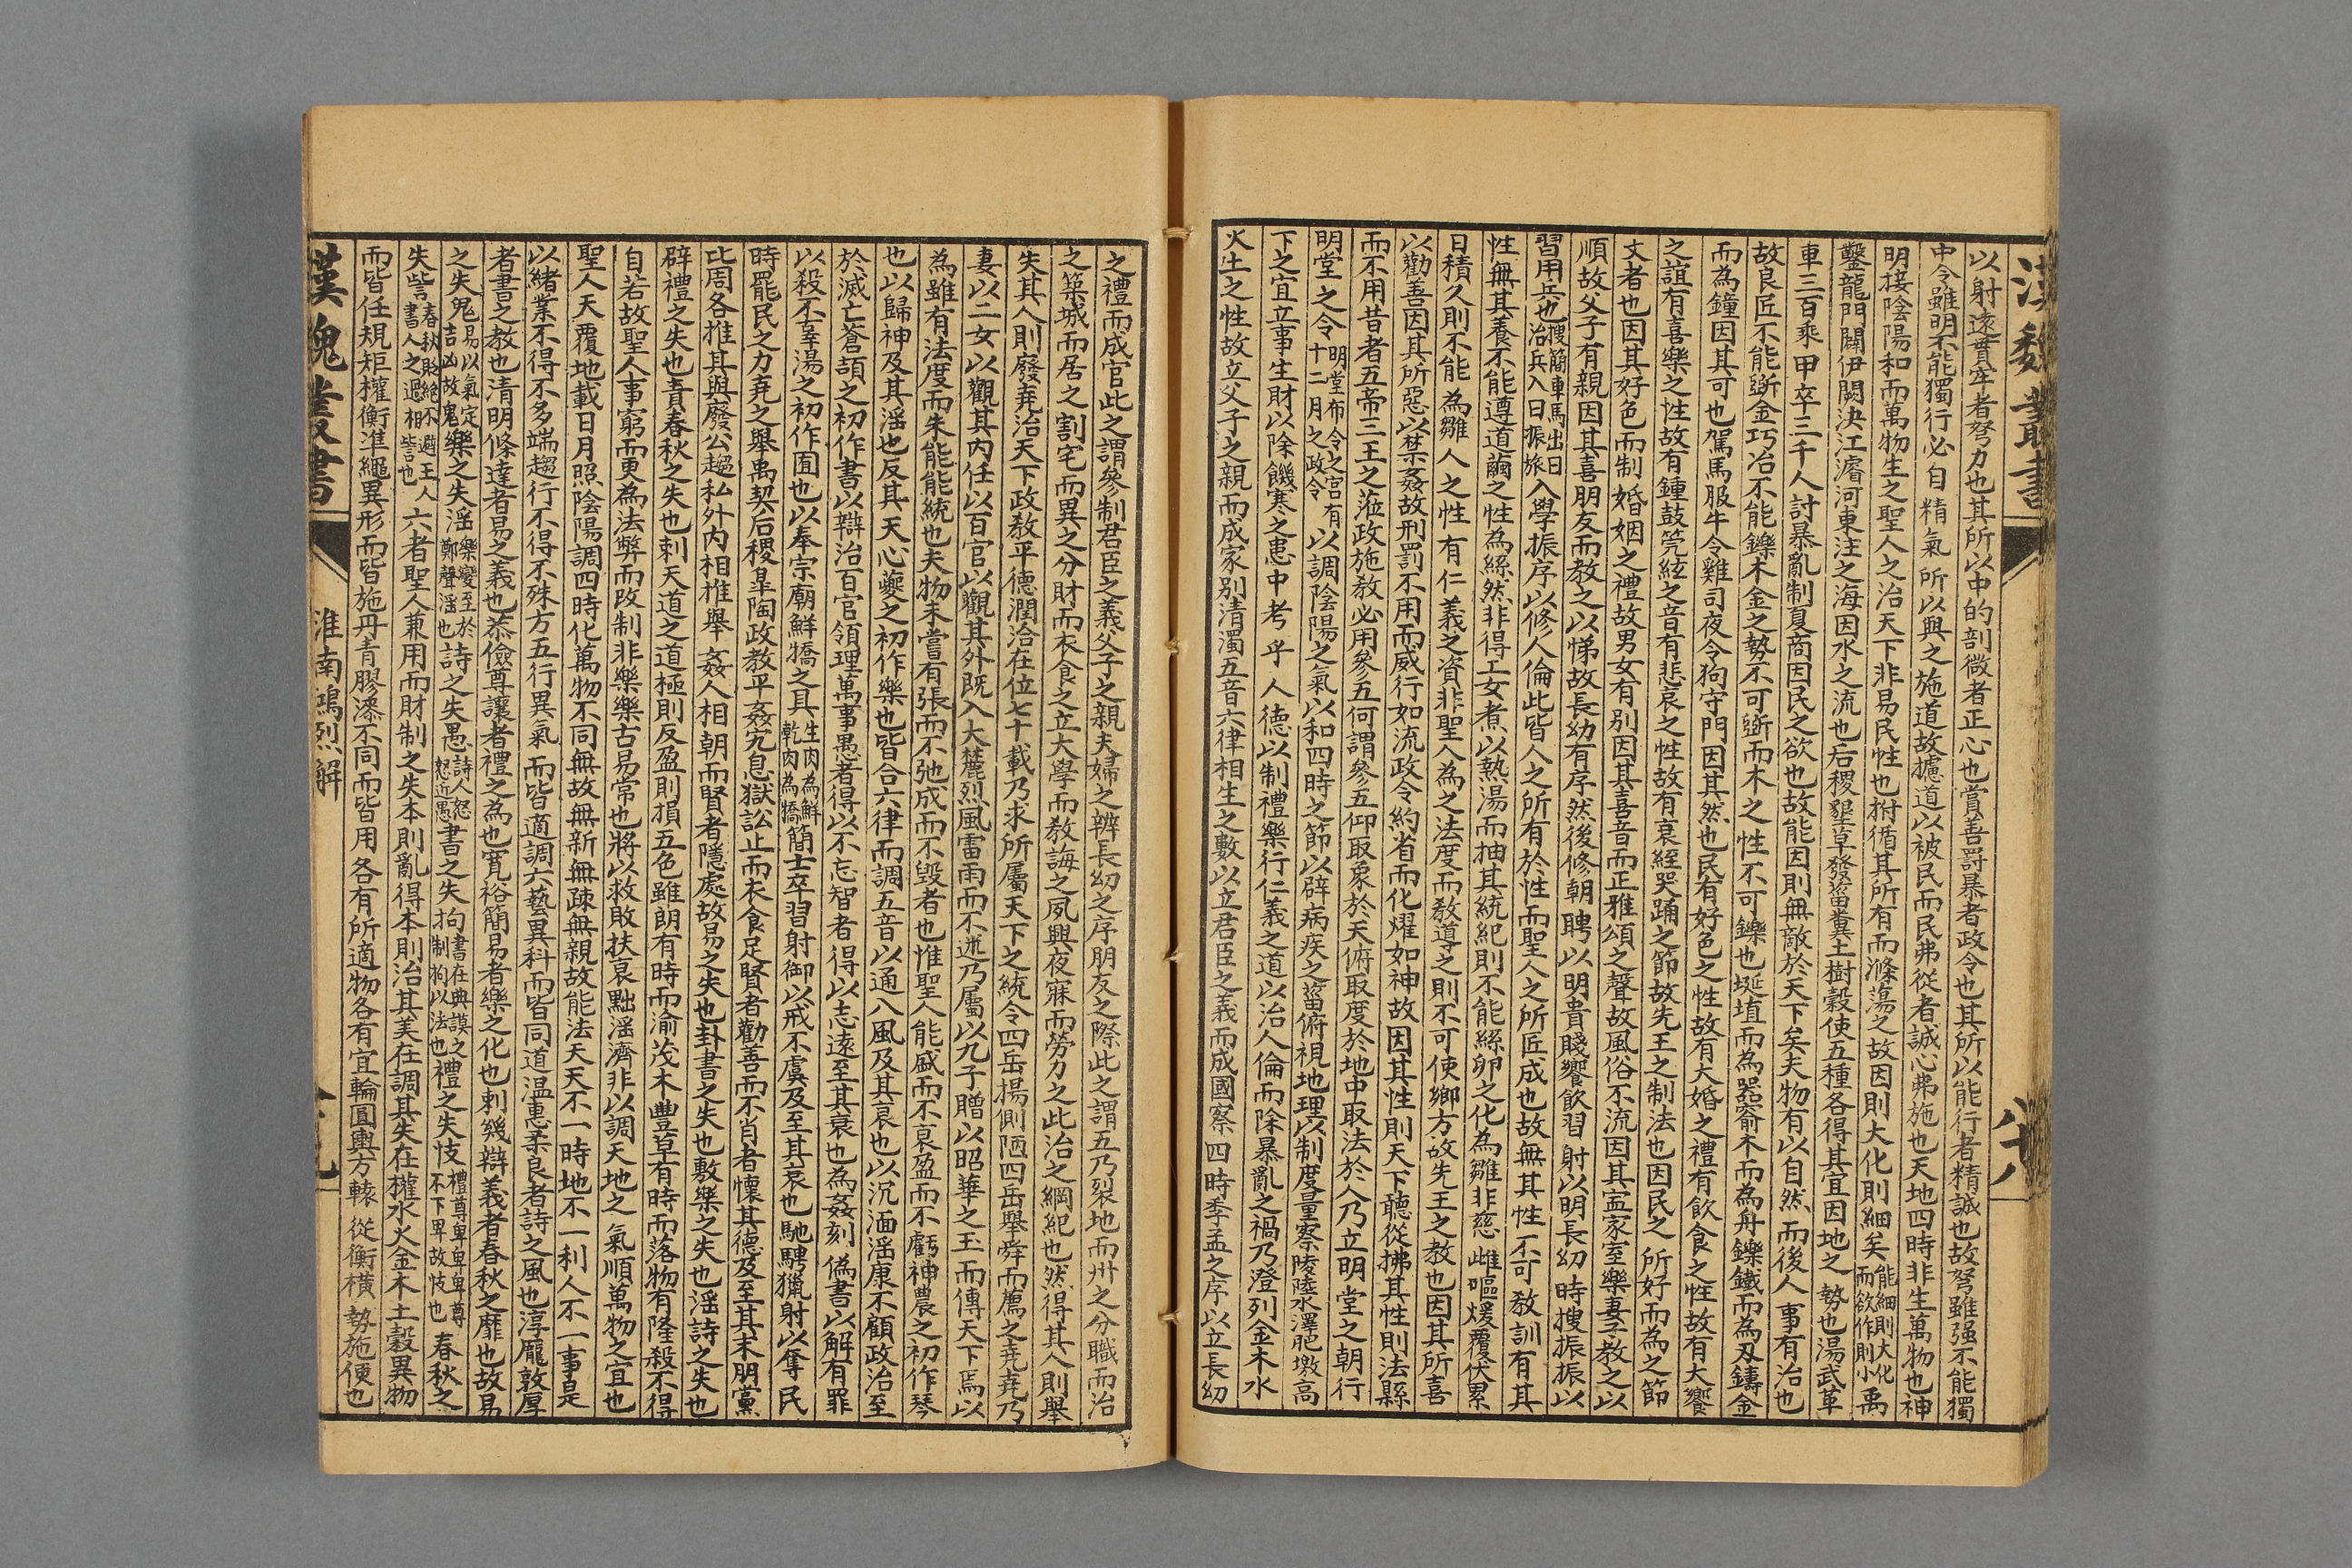 漢魏叢書
以射遠貫牢者弩力也其所以中的剖微者正心也賞善罰暴者政令也其所以能行者精誠也故弩雖强不能獨
中令雖明不能獨行必自精氣所以與之施道故攄道以被民而民弗從者誠心弗施也天地四時非生萬物也神
明接陰陽和而萬物生之聖人之治天下非易民性也拊循其所有而滌蕩之故因則大化則細矣能細則大化而欲作則小禹
鑿龍門闢伊闕決江濬河東注之海因水之流也后稷墾草發菑糞土樹穀使五種各得其宜因地之勢也湯武革
車三百乘甲卒三千人討暴亂制夏商因民之欲也故能因則無敵於天下矣夫物有以自然而後人事有治也
故良匠不能斲金巧冶不能鑠木金之勢不可斲而木之性不可鑠也埏埴而為器窬木而為舟鑠鐵而為刃鑄金
而為鐘因其可也駕馬服牛令雞司夜令狗守門因其然也民有好色之性故有大婚之禮有飲食之性故有大饗
之誼有喜樂之性故有鍾鼓筦絃之音有悲哀之性故有哀絰哭踊之節故先王之制法也因民之所好而為之節
文者也因其好色而制婚姻之禮故男女有別因其喜音而正雅頌之聲故風俗不流因其寍家室樂妻子教之以
順故父子有親因其喜朋友而教之以悌故長幼有序然後修朝聘以明貴賤饗飲習射以明長幼時搜振振以
習用兵也搜簡車馬出曰治兵入曰振旅入學振序以修人倫此皆人之所有於性而聖人之所匠成也故無其性不可教訓有其
性無其養不能遵道繭之性為絲然非得工女煮以熱湯而抽其統紀則不能絲卵之化為雛非慈雌嘔煖覆伏累
日積久則不能為雛人之性有仁義之資非聖人為之法度而教導之則不可使鄉方故先王之教也因其所喜
以勸善因其所惡以禁姦故刑罰不用而威行如流政令約省而化燿如神故因其性則天下聽從拂其性則法縣
而不用昔者五帝三王之蒞政施教必用參五何謂參五仰取象於天俯取度於地中取法於人乃立明堂之朝行
明堂之令明堂布令之宮有十二月之政令以調陰陽之氣以和四時之節以辟病疾之菑俯視地理以制度量察陵陸水澤肥墩高
下之宜立事生財以除饑寒之患中考乎人德以制禮樂行仁義之道以治人倫而除暴亂之禍乃澄列金木水
火土之性故立父子之親而成家別清濁五音六律相生之數以立君臣之義而成國察四時季孟之序以立長幼
之禮而成官此之謂參制君臣之義父子之親夫婦之辨長幼之序朋友之際此之謂五乃裂地而州之分職而治
之築城而居之割宅而異之分財而衣食之立大學而教誨之夙興夜寐而勞力之此治之綱紀也然得其人則舉
失其人則廢堯治天下政教平德潤洽在位七十載乃求所屬天下之統令四岳揚側陋四岳舉舜而薦之堯堯乃
妻以二女以觀其內任以百官以觀其外既入大麓烈風雷雨而不迷乃屬以九子贈以昭華之玉而傳天下焉以
為雖有法度而朱能能統也夫物未嘗有張而不弛成而不毀者也惟聖人能盛而不衰盈而不虧神農之初作琴
也以歸神及其淫也反其天心夔之初作樂也皆合六律而調五音以通八風及其衰也以沉湎淫康不顧政治至
於滅亡蒼頡之初作書以辯治百官領理萬事愚者得以不忘智者得以志遠至其衰也為姦刻偽書以解有罪
以殺不辜湯之初作囿也以奉宗廟鮮犞之具生肉為鮮乾肉為犞簡士卒習射御以戒不虞及至其衰也馳騁獵射以奪民
時罷民之力堯之舉禹契后稷皐陶政教平姦宄息獄訟止而衣食足賢者勸善而不肖者懷其德及至其末朋黨
比周各推其與廢公趨私外內相推舉姦人相朝而賢者隱處故易之失也卦書之失也敷樂之失也淫詩之失也
辟禮之失也責春秋之失也刺天道之道極則反盈則損五色雖朗有時而渝茂木豐草有時而落物有隆殺不得
自若故聖人事窮而更為法弊而改制非樂變古易常也將以救敗扶衰黜淫濟非以調天地之氣順萬物之宜也
聖人天覆地載日月照陰陽調四時化萬物不同無故無新無疎無親故能法天天不一時地不一利人不一事是
以緒業不得不多端趨行不得不殊方五行異氣而皆適調六藝異科而皆同道温惠柔良者詩之風也淳龐敦厚
者書之教也清明條達者易之義也恭儉尊讓者禮之為也寬裕簡易者樂之化也刺幾辯義者春秋之靡也故易
之失鬼易以氣定吉凶故鬼樂之失淫樂變至於鄭聲淫也詩之失愚詩人怒怒近愚書之失拘書在典謨之制拘以法也禮之失忮禮尊卑卑卑尊不下卑故忮也春秋之
失訾春秋貶絕不避王人書人之過相訾也六者聖人兼用而財制之失本則亂得本則治其美在調其失在權水火金木土穀異物
而皆任規矩權衡準繩異形而皆施丹青膠漆不同而皆用各有所適物各有宜輪圓輿方轅從衡橫勢施便也
漢魏叢書
淮南鴻烈解